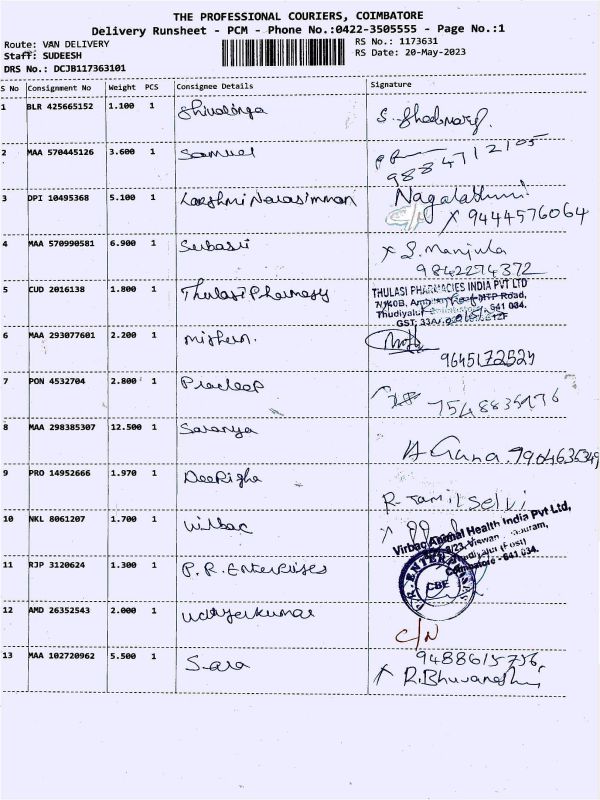 THE PROFESSIONAL COURIERS, COIMBATORE
Delivery Runsheet - PCM - Phone No.:0422-3505555 - Page No.:1
Route: VAN DELIVERY RS No.: 1173631
Staff: SUDEESH RS Date: 20-May-2023
DRS No.: DCJB117363101
S No Consignment No Weight PCS Consignee Details Signature
1 BLR 425665152 1.100 1 Shivalinga
2 MAA 570445126 3.600 1 Samuel 9884712105
3 DPI 10495368 5.100 1 Lakshmi Narasimman Nagalathmi
C/N X 9444576064
4 MAA 570990581 6.900 1 Subasri X S. Manjula
9842274372
5 CUD 2016138 1.800 1 Thulasi Pharmacy THULASI PHARMACIES INDIA PVT LTD
MTP Road,
641 034.
GST: 33A
6 MAA 293077601 2.200 1
9645172524
7 PON 4532704 2.800 1 Pradeep
8 MAA 298385307 12.500 1 Saranya
A Guna. 7904636349
9 PRO 14952666 1.970 1 Deepigha
R. Tamil Selvi
10 NKL 8061207 1.700 1 Virbac X
Virbac Animal Health India Pvt Ltd,
(Post)
Coimbatore - 641 034.
11 RJP 3120624 1.300 1 P. R. Enterprises
P.R. ENTERPRISES
CBE
12 AMD 26352543 2.000 1 Udhyakumar
C/N
13 MAA 102720962 5.500 1 Sara 9488615756,
X R. Bhuvaneshwari